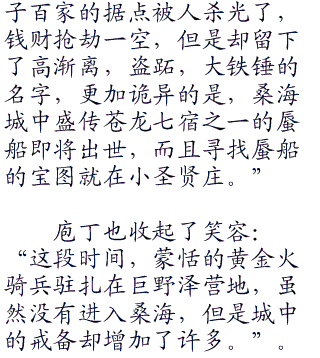 子百家的据点被人杀光了，
钱财抢劫一空，但是却留下
了高渐离，盗跖，大铁锤的
名字，更加诡异的是，桑海
城中盛传苍龙七宿之一的蜃
船即将出世，而且寻找蜃船
的宝图就在小圣贤庄。”
庖丁也收起了笑容：
“这段时间，蒙恬的黄金火
骑兵驻扎在巨野泽营地，虽
然没有进入桑海，但是城中
的戒备却增加了许多。”。